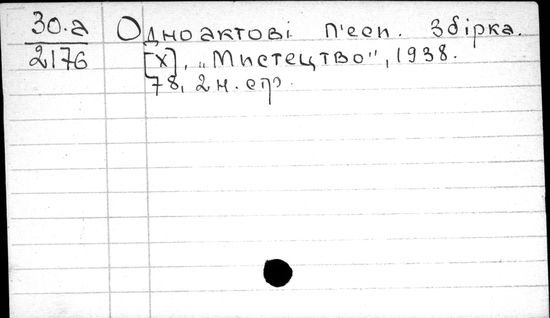 30.а
2176
Одноактові п'єси. Збірка.
[Х], „Мистецтво", 1938.
78, 2 н. стр.